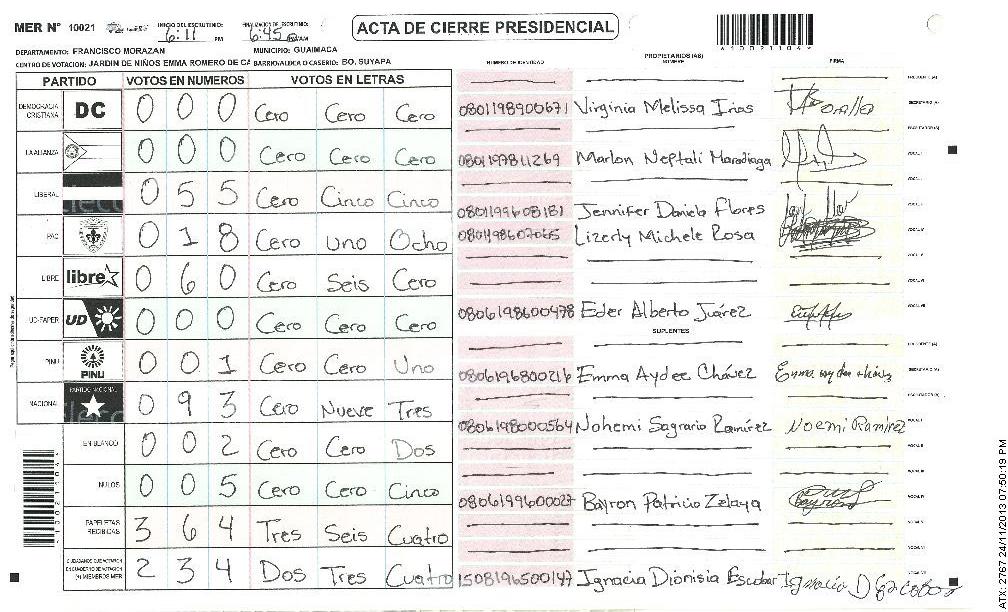 MER Nº 10021 INICIO DEL ESCRUTINIO: 6:11 PM FINALIZACION DE ESCRUTINIO: 6:45 ACTA DE CIERRE PRESIDENCIAL
DEPARTAMENTO: FRANCISCO MORAZAN MUNICIPIO: GUAIMACA
CENTRO DE VOTACION: JARDIN DE NIÑOS EMMA ROMERO DE CA BARRIO/ALDEA O CASERIO: BO. SUYAPA
PARTIDO VOTOS EN NUMEROS VOTOS EN LETRAS
NUMERO DE IDENTIDAD PROPIETARIOS (AS) NOMBRE FIRMA
DEMOCRACIA CRISTIANA DC 0 0 0 Cero Cero Cero
LA ALIANZA 0 0 0 Cero Cero Cero
LIBERAL 0 5 5 Cero Cinco Cinco
PAC 0 1 8 Cero Uno Ocho
LIBRE libre 0 6 0 Cero Seis Cero
UD-FAPER UD 0 0 0 Cero Cero Cero
PINU PINU 0 0 1 Cero Cero Uno
NACIONAL PARTIDO NACIONAL 0 9 3 Cero Nueve Tres
EN BLANCO 0 0 2 Cero Cero Dos
NULOS 0 0 5 Cero Cero Cinco
PAPELETAS RECIBIDAS 3 6 4 Tres Seis Cuatro
2 3 4 Dos Tres Cuatro
0801198900671 Virginia Melissa Irias
0801197811269 Marlon Neptali Maradiaga
0801199608181 Jennifer Daniela Flores
0801198607065 Lizerly Michele Rosa
0806198600478 Eder Alberto Juárez
SUPLENTES
0806196800216 Emma Aydee Chávez
0806198000564 Nohemi Sagrario Ramírez Noemi Ramírez
0806199600027 Bayron Patricio Zelaya
1508196500147 Ignacia Dionisia Escobar
ATX-2767 24/11/2013 07:50:19 PM